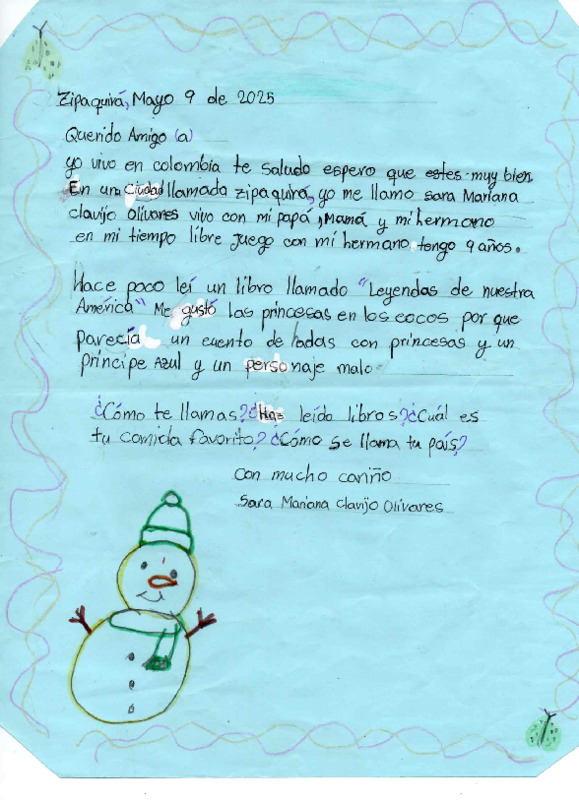 Zipaquirá, Mayo 9 de 2025
Querido Amigo (a)
yo vivo en colombia te saludo espero que estes muy bien
En una Ciudad llamada zipaquirá, yo me llamo sara Mariana
clavijo olivares vivo con mi papá, Mamá y mi hermano
en mi tiempo libre juego con mi hermano, tengo 9 años.
Hace poco leí un libro llamado "Leyendas de nuestra
América" Me gustó las princesas en los cocos por que
parecía un cuento de hadas con princesas y un
príncipe Azul y un personaje malo
¿Cómo te llamas? ¿Has leído libros? ¿Cuál es
tu comida favorito? ¿Cómo se llama tu país?
con mucho cariño
Sara Mariana Clavijo Olivares